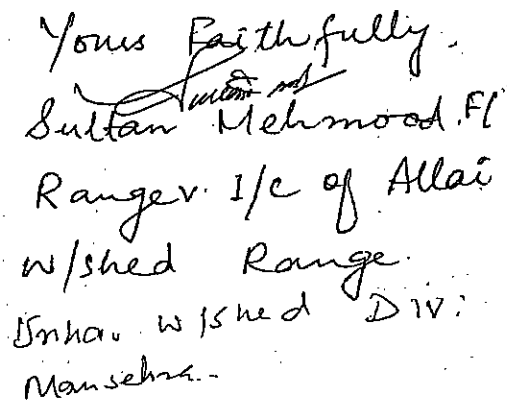 Yours Faithfully.
Sultan Mehmood. F/
Ranger. I/c of Allai
w/shed Range.
w/shed Div:
Mansehra.